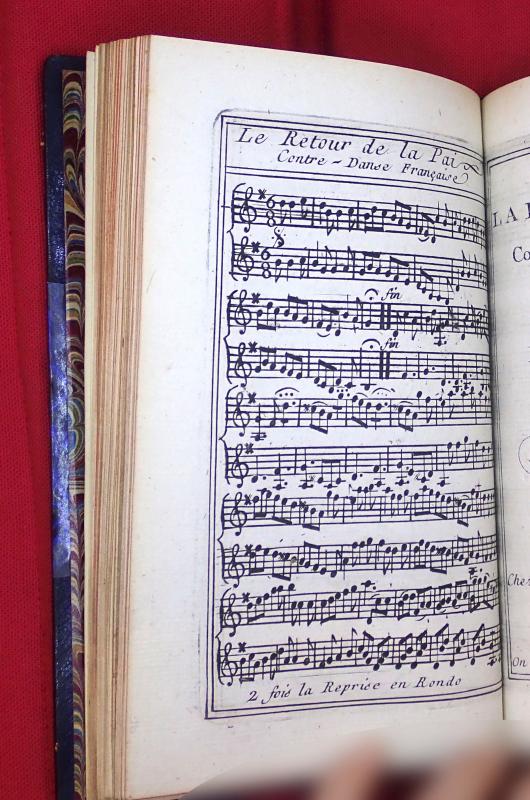 Le Retour de la Paix
Contre - Danse Française
6
8
6
8
fin
fin
2 fois la Reprise en Rondo
LA
Co
Che
On